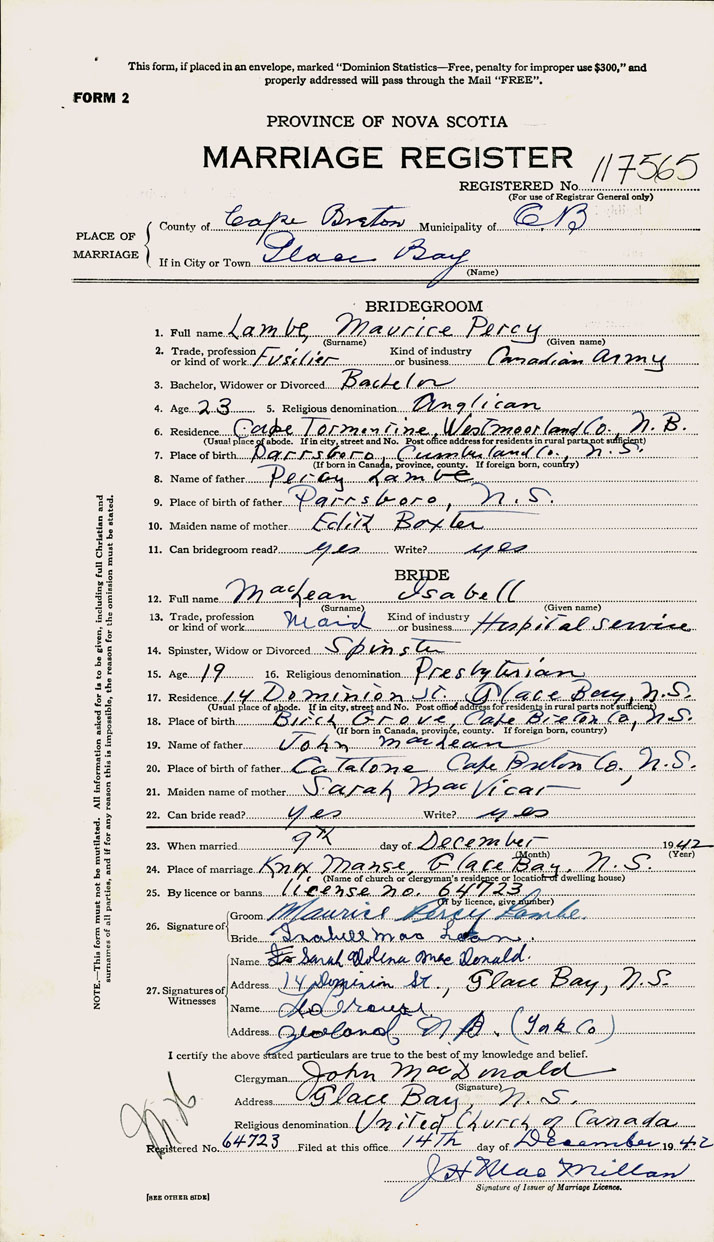 This form, if placed in an envelope, marked "Dominion Statistics—Free, penalty for improper use $300," and
properly addressed will pass through the Mail "FREE".
FORM 2
PROVINCE OF NOVA SCOTIA
MARRIAGE REGISTER
REGISTERED No. 117565
(For use of Registrar General only)
PLACE OF MARRIAGE
County of Cape Breton Municipality of C.B
If in City or Town Glace Bay
(Name)
BRIDEGROOM
1. Full name Lambe, Maurice Percy
(Surname) (Given name)
2. Trade, profession or kind of work Fusilier Kind of industry or business Canadian Army
3. Bachelor, Widower or Divorced Bachelor
4. Age 23 5. Religious denomination Anglican
6. Residence Cape Tormentine, Westmoorland Co., N.B.
(Usual place of abode. If in city, street and No. Post office address for residents in rural parts not sufficient)
7. Place of birth Parrsboro, Cumberland Co., N.S.
(If born in Canada, province, county. If foreign born, country)
8. Name of father Percy Lambe
9. Place of birth of father Parrsboro, N.S.
10. Maiden name of mother Edith Boxter
11. Can bridegroom read? yes Write? yes
BRIDE
12. Full name MacLean Isabell
(Surname) (Given name)
13. Trade, profession or kind of work Maid Kind of industry or business Hospital service
14. Spinster, Widow or Divorced Spinster
15. Age 19 16. Religious denomination Presbyterian
17. Residence 14 Dominion St. Glace Bay, N.S.
(Usual place of abode. If in city, street and No. Post office address for residents in rural parts not sufficient)
18. Place of birth Birch Grove, Cape Breton Co, N.S.
(If born in Canada, province, county. If foreign born, country)
19. Name of father John MacLean
20. Place of birth of father Catalone Cape Breton Co., N.S.
21. Maiden name of mother Sarah MacVicar
22. Can bride read? yes Write? yes
23. When married 9th day of December 1942
(Month) (Year)
24. Place of marriage Knox Manse, Glace Bay, N.S.
(Name of church or clergyman's residence or location of dwelling house)
25. By licence or banns license no. 64723
(If by licence, give number)
26. Signature of
Groom Maurice Percy Lambe.
Bride Isabell MacLean.
27. Signatures of Witnesses
Name Sarah Dolina MacDonald.
Address 14 Dominion St., Glace Bay, N.S.
Name
Address N.B. (York Co)
I certify the above stated particulars are true to the best of my knowledge and belief.
Clergyman John MacDonald
(Signature)
Address Glace Bay, N.S.
Religious denomination United Church of Canada
Registered No. 64723 Filed at this office 14th day of December 1942
J H MacMillan
Signature of Issuer of Marriage Licence.
[SEE OTHER SIDE]
NOTE.—This form must not be mutilated. All information asked for is to be given, including full Christian and
surnames of all parties, and if for any reason this is impossible, the reason for the omission must be stated.